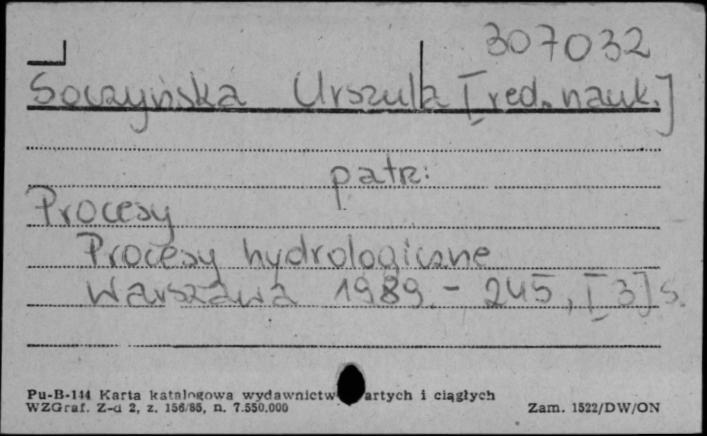 307032
Soczyńska Urszula [red. nauk.]
patrz:
Procesy
Procesy hydrologiczne
Warszawa 1989. - 245, [3] s.
Pu-B-144 Karta katalogowa wydawnictw artych i ciągłych
WZGraf. Z-d 2, z. 156/85, n. 7.550.000
Zam. 1522/DW/ON